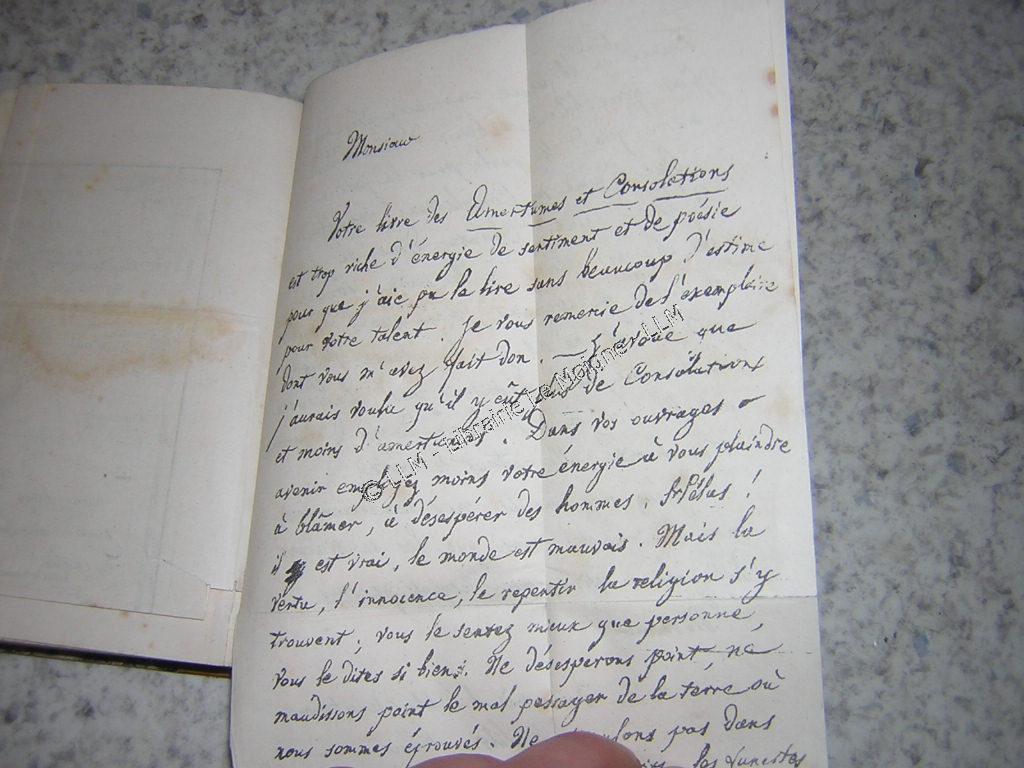 Monsieur
Votre livre des Amertumes et Consolations
est trop riche d'énergie de sentiment et de poésie
pour que j'aie pu le lire sans beaucoup d'estime
pour votre talent. Je vous remercie de l'exemplaire
dont vous m'avez fait don. — J'avoue que
j'aurais voulu qu'il y eût plus de Consolations
et moins d'amertumes. Dans vos ouvrages à
avenir employez moins votre énergie à vous plaindre
à blâmer, à désespérer des hommes. hélas!
il est vrai, le monde est mauvais. Mais la
vertu, l'innocence, le repentir la religion s'y
trouvent; vous le sentez mieux que personne,
vous le dites si bien. Ne désesperons point, ne
maudissons point le mal passager de la terre où
nous sommes éprouvés. Ne pas dans
les funestes
© LLM - Librairie Le Moigne - LLM